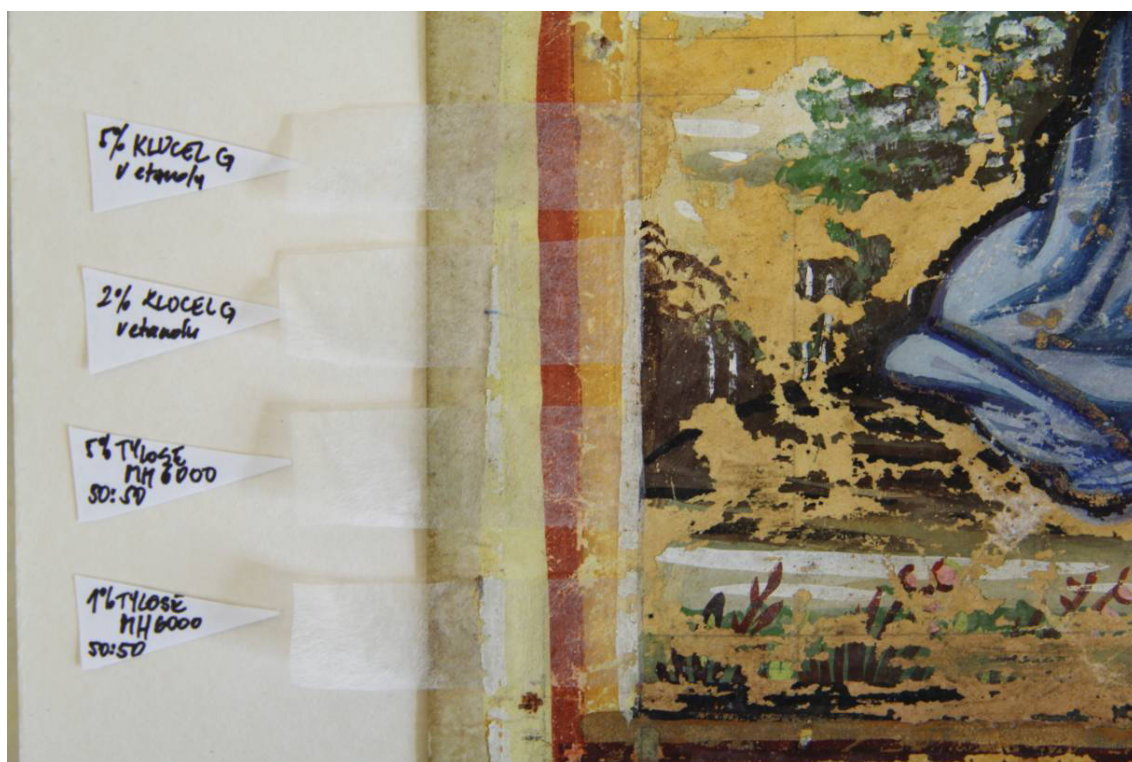 5% KLUCEL G
v etanolu
2% KLUCEL G
v etanolu
5% TYLOSE
MH 6000
50:50
1% TYLOSE
MH 6000
50:50